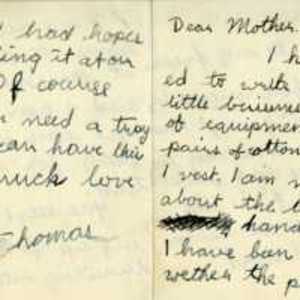 had hopes
ing it at on
Of course
need a tray
can have this
much love
Thomas
Dear Mother.
I h
ed to write
little
of equipmen
pairs of cotton
I vest. I am n
about the b
hand
I have ban
wether the p